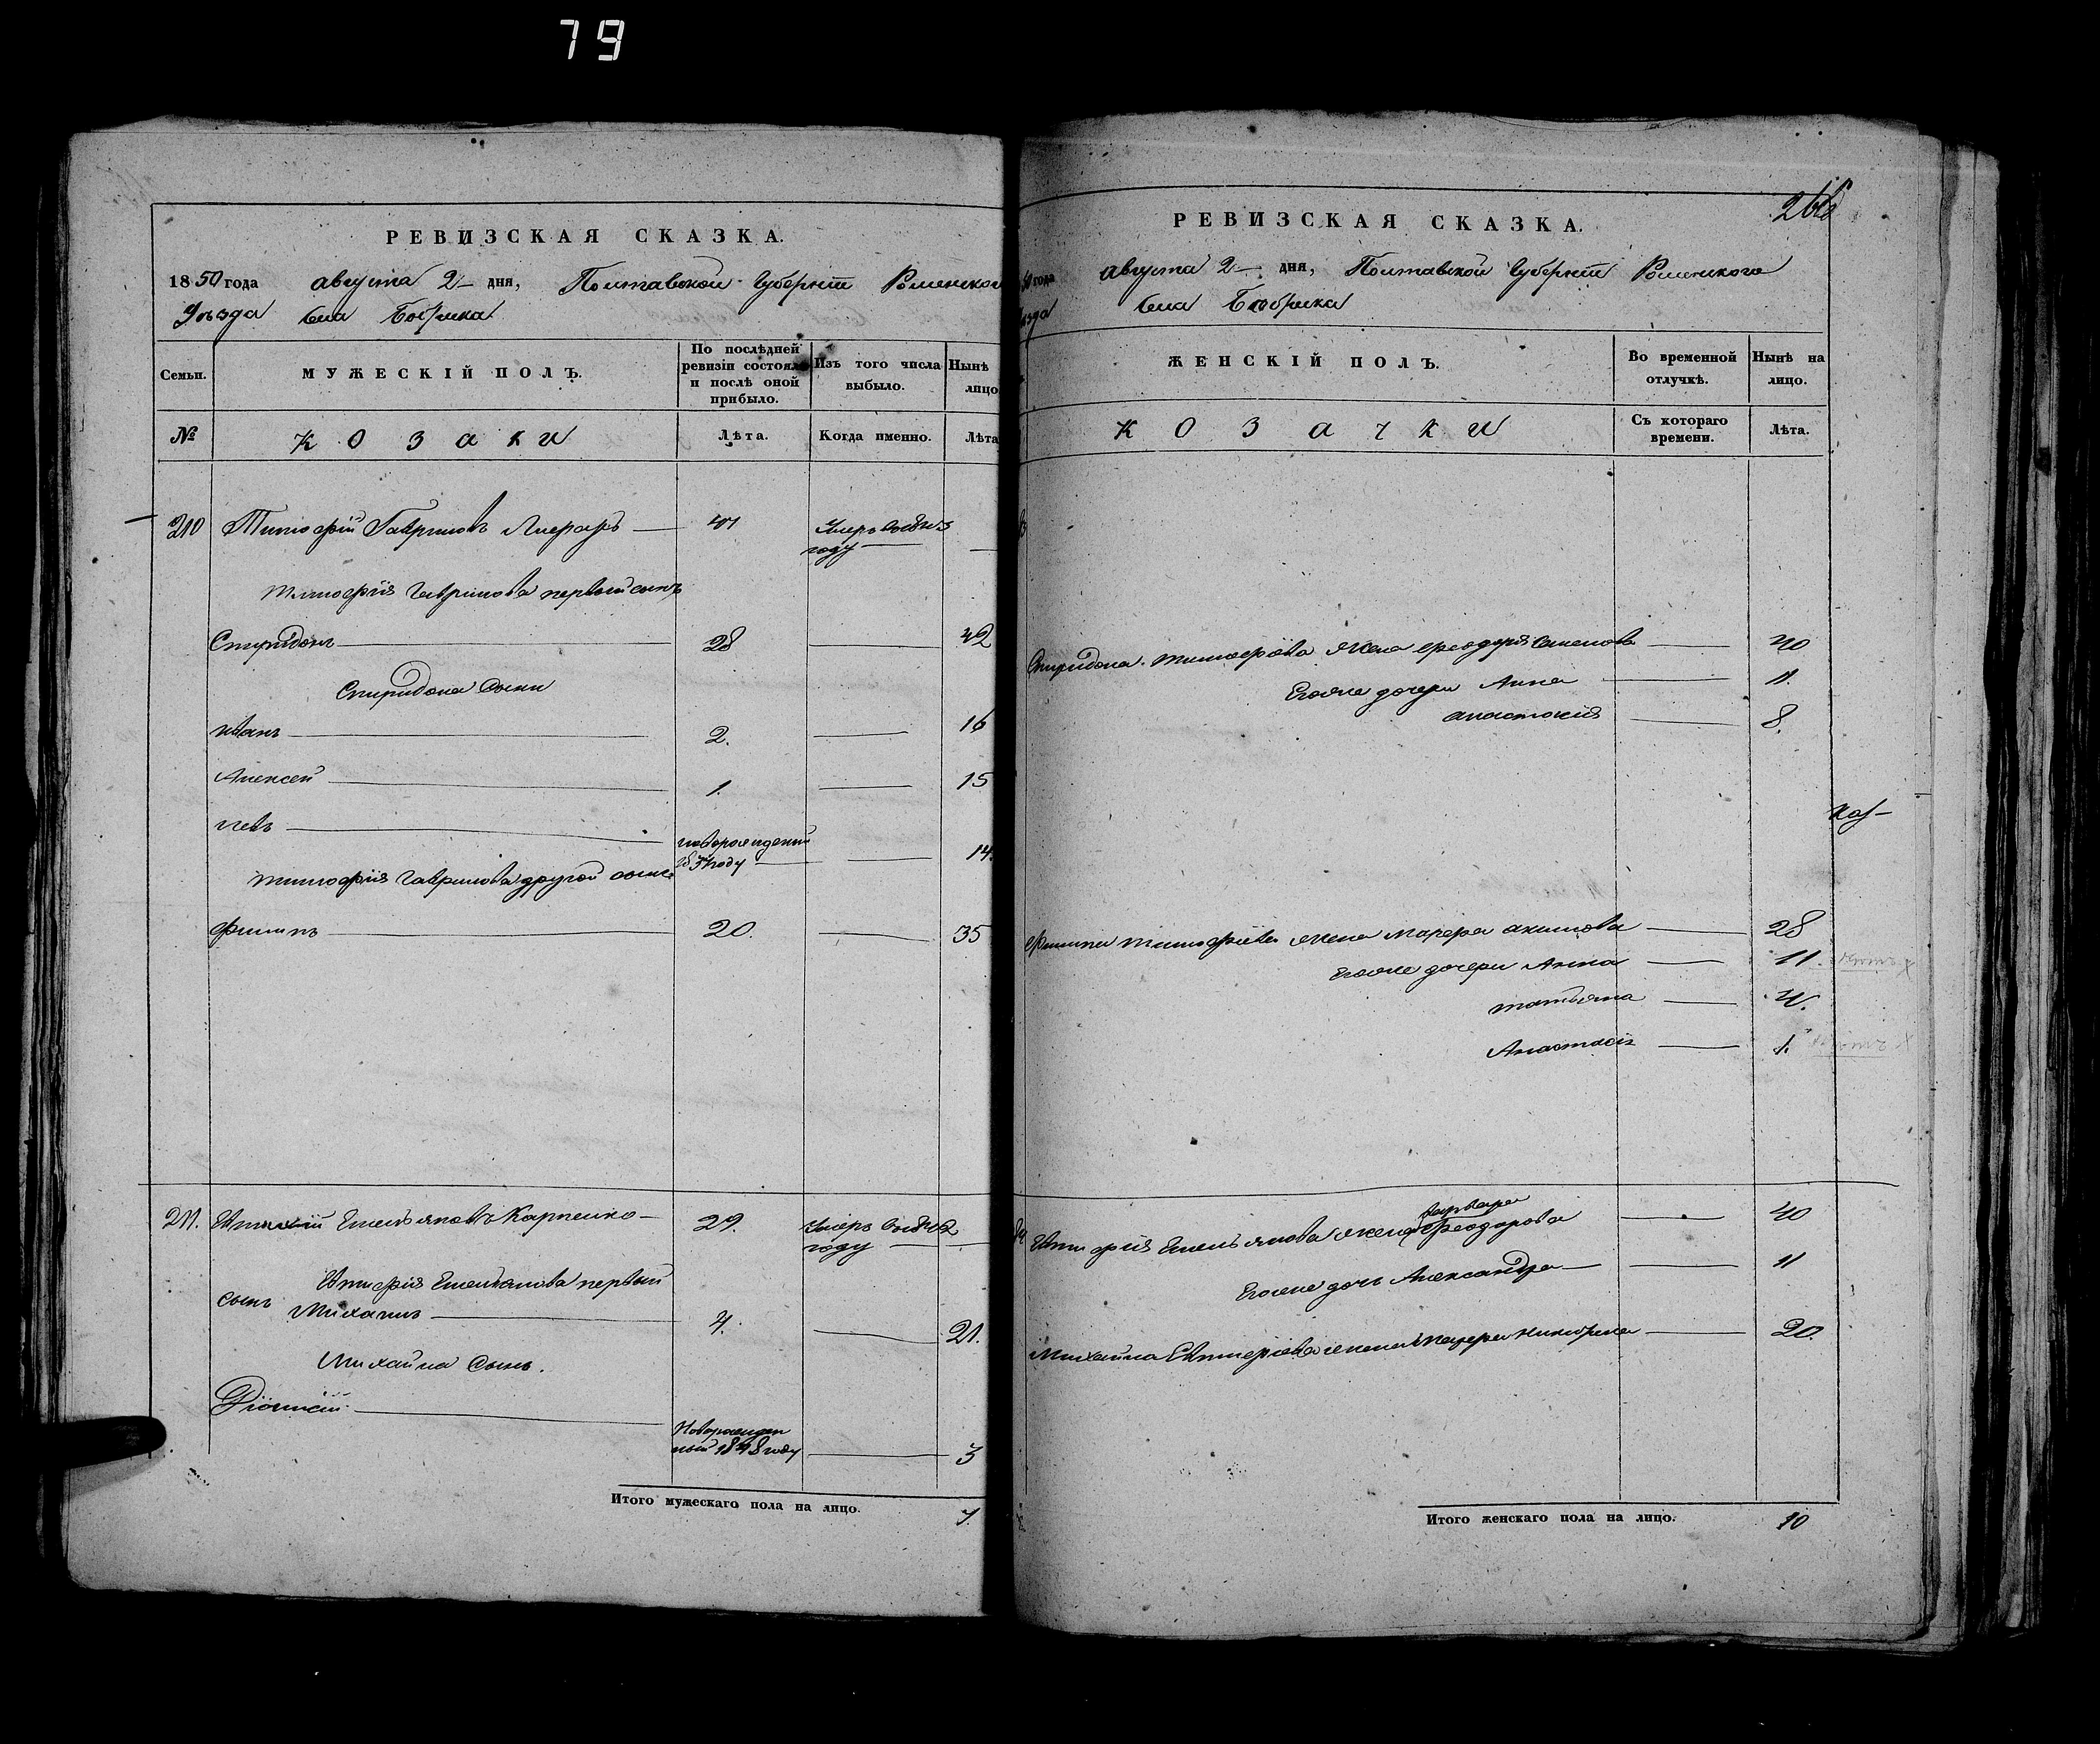 79
РЕВИЗСКАЯ СКАЗКА.
1850 года августа 2 дня, Полтавской Губернiи Роменского
Уѣзда села Бобрика
Семьи. МУЖЕСКIЙ ПОЛЪ. По послѣдней ревизiи состояло и послѣ оной прибыло. Изъ того числа выбыло. Нынѣ лицо
№ козаки Лѣта. Когда именно. Лѣта
210 Тимофiй Гавриловъ 41 Умеръ
году
Тимофiя Гаврилова первый сынъ
Спиридонъ 28 42
Спиридона сыны
иванъ 2. 16
Алексей 1. 15
левъ новорожденый
году 14.
тимофiя Гаврилова другой сынъ
филипъ 20. 35
211. Емельяновъ Карпенко 29. умеръ
году
Емельянова первый
сынъ Михаилъ 4. 21.
Михайла сынъ.
Дiонисiй Новорожден
ный 1848 году 3
Итого мужескаго пола на лицо. 7.
РЕВИЗСКАЯ СКАЗКА.
года августа 2 дня, Полтавской Губернiи Роменского
села Бобрика
ЖЕНСКIЙ ПОЛЪ. Во временной отлучкѣ. Нынѣ на лицо.
козачки Съ котораго времени. Лѣта.
Спиридона тимофѣева жена феодора семенова 40
Егоже дочери Анна 11.
анастасия 8.
филипа тимофiева жена марфа акимова 28
Егоже дочери Анна 11
татьяна 4.
Анастасiя 1.
варвара
Емельянова жена феодорова 40
Егоже дочь Александра 11
Михайла жена 20.
Итого женскаго пола на лицо. 10